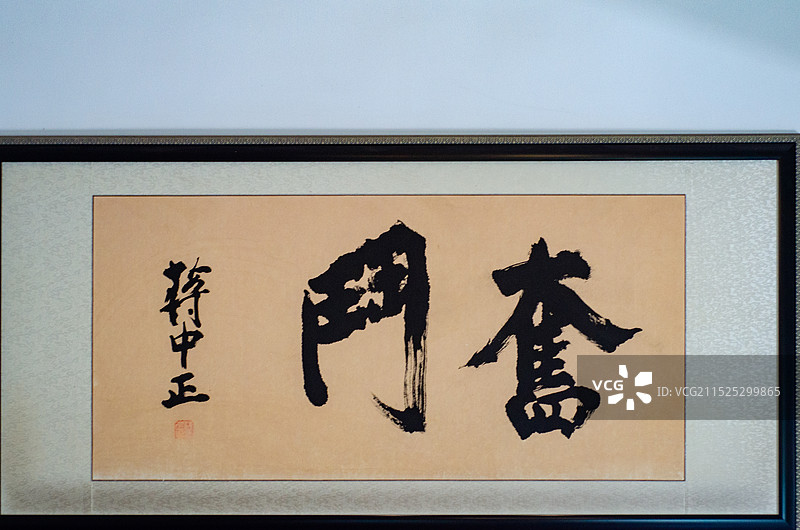 奮鬥
蔣中正
VCG
ID:VCG211525299865